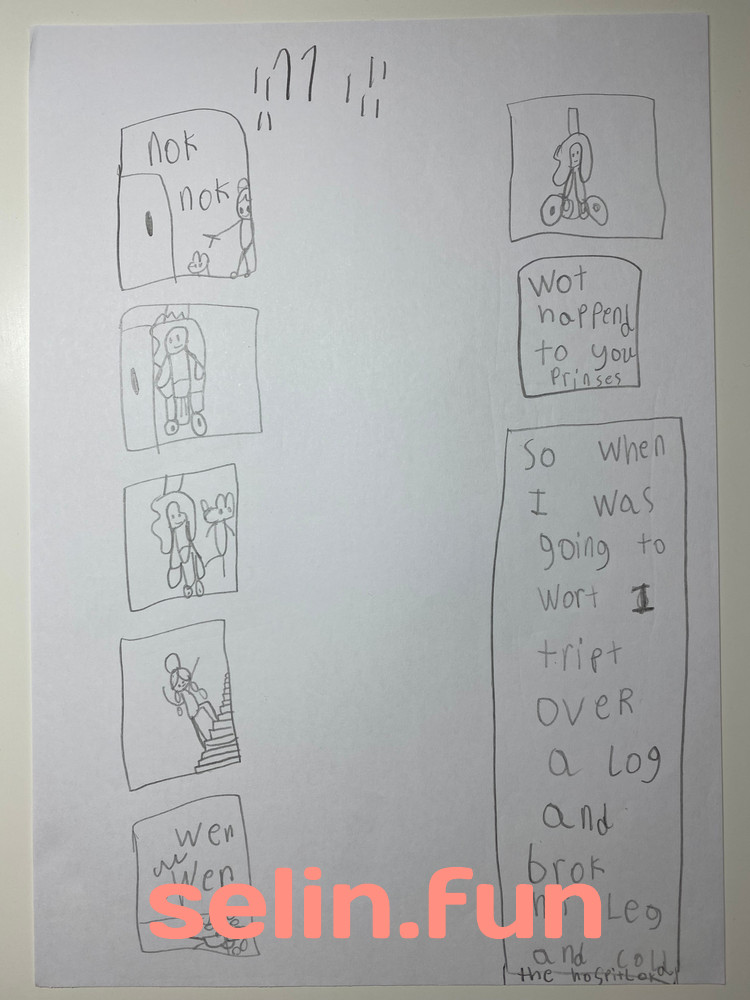 11
nok
nok
wen
wen
wot
happend
to you
prinses
So when
I was
going to
wort I
tript
over
a log
and
brok
leg
and cold
the
selin.fun